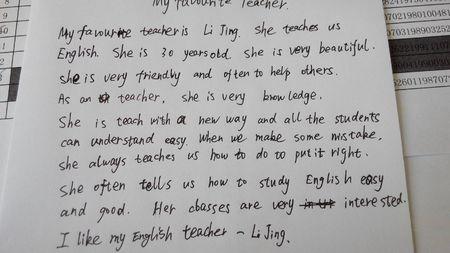 My favourite Teacher.
My favourite teacher is Li Jing. She teaches us
English. She is 30 years old. She is very beautiful.
She is very friendly and often to help others.
As an teacher, she is very knowledge.
She is teach with a new way and all the students
can understand easy. When we make some mistake,
she always teaches us how to do to put it right.
She often tells us how to study English easy
and good. Her classes are very interested.
I like my English teacher - Li Jing.